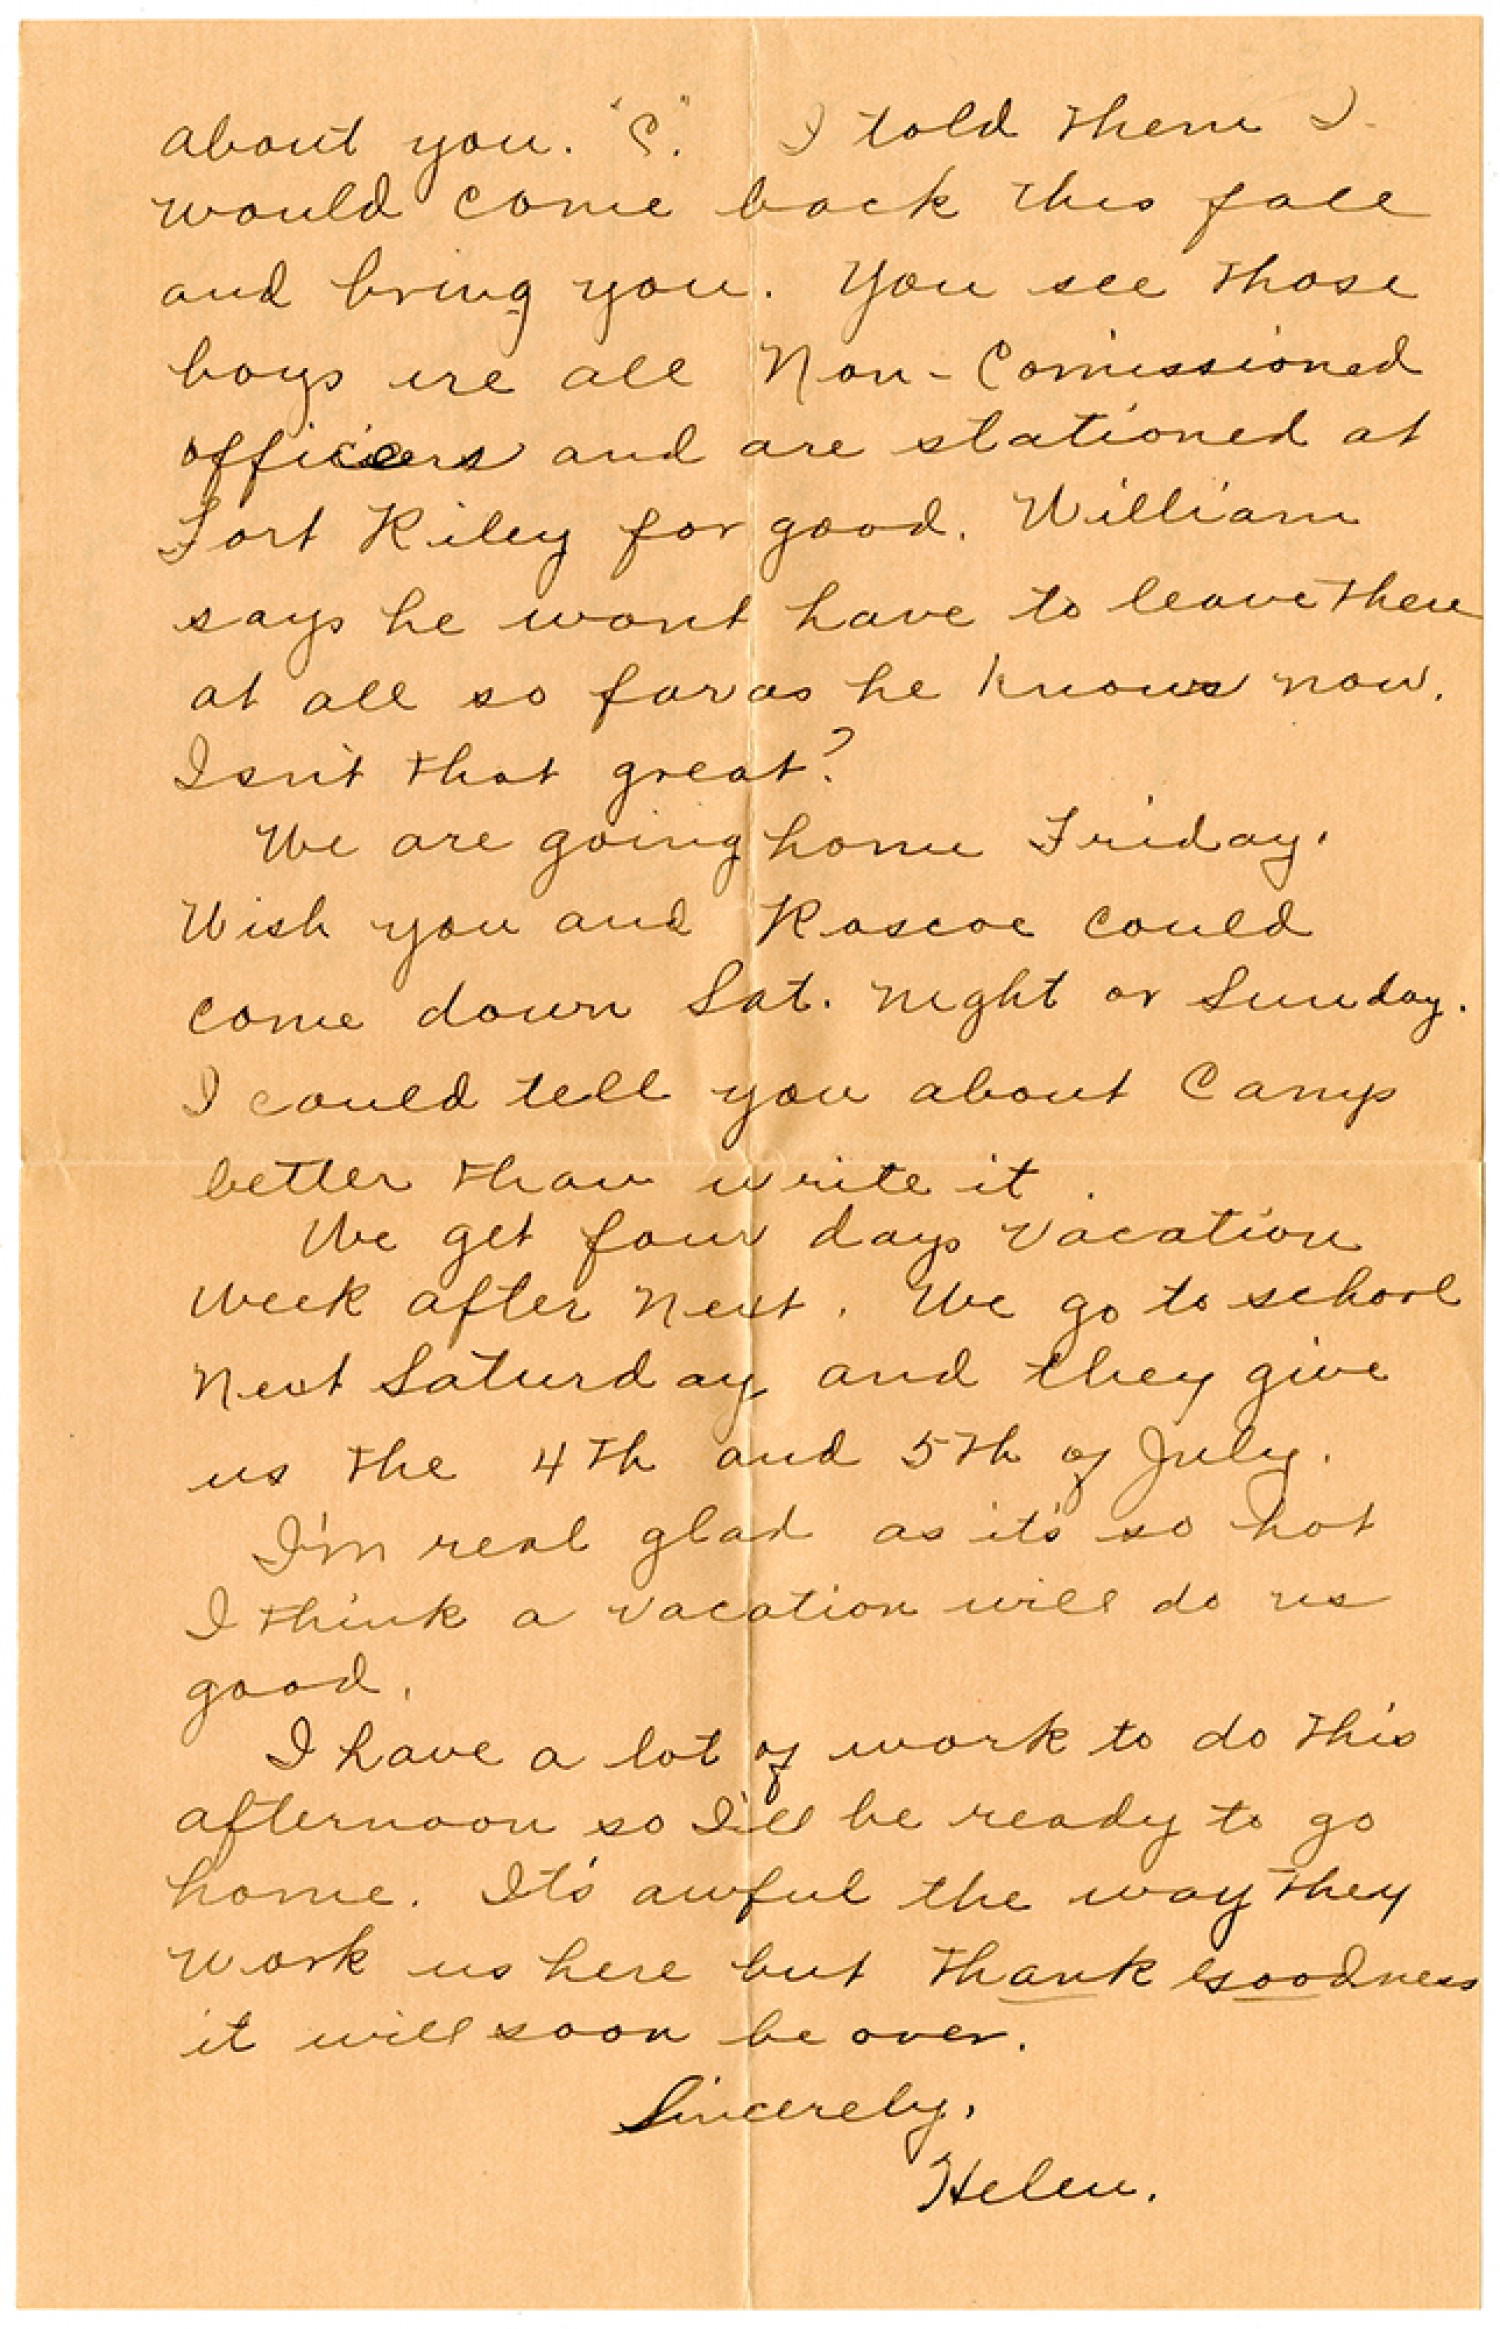 about you. "C." I told them I
would come back this fall
and bring you. You see those
boys are all Non-Comissioned
officers and are stationed at
Fort Riley for good. William
says he wont have to leave there
at all so far as he knows now.
Isn't that great?
We are going home Friday.
Wish you and Roscoe could
come down Sat. night or Sunday.
I could tell you about Camp
better than write it.
We get four days vacation
week after next. We go to school
next Saturday and they give
us the 4th and 5th of July.
I'm real glad as it's so hot
I think a vacation will do us
good.
I have a lot of work to do this
afternoon so I'll be ready to go
home. It's awful the way they
work us here but thank goodness
it will soon be over.
Sincerely,
Helen.